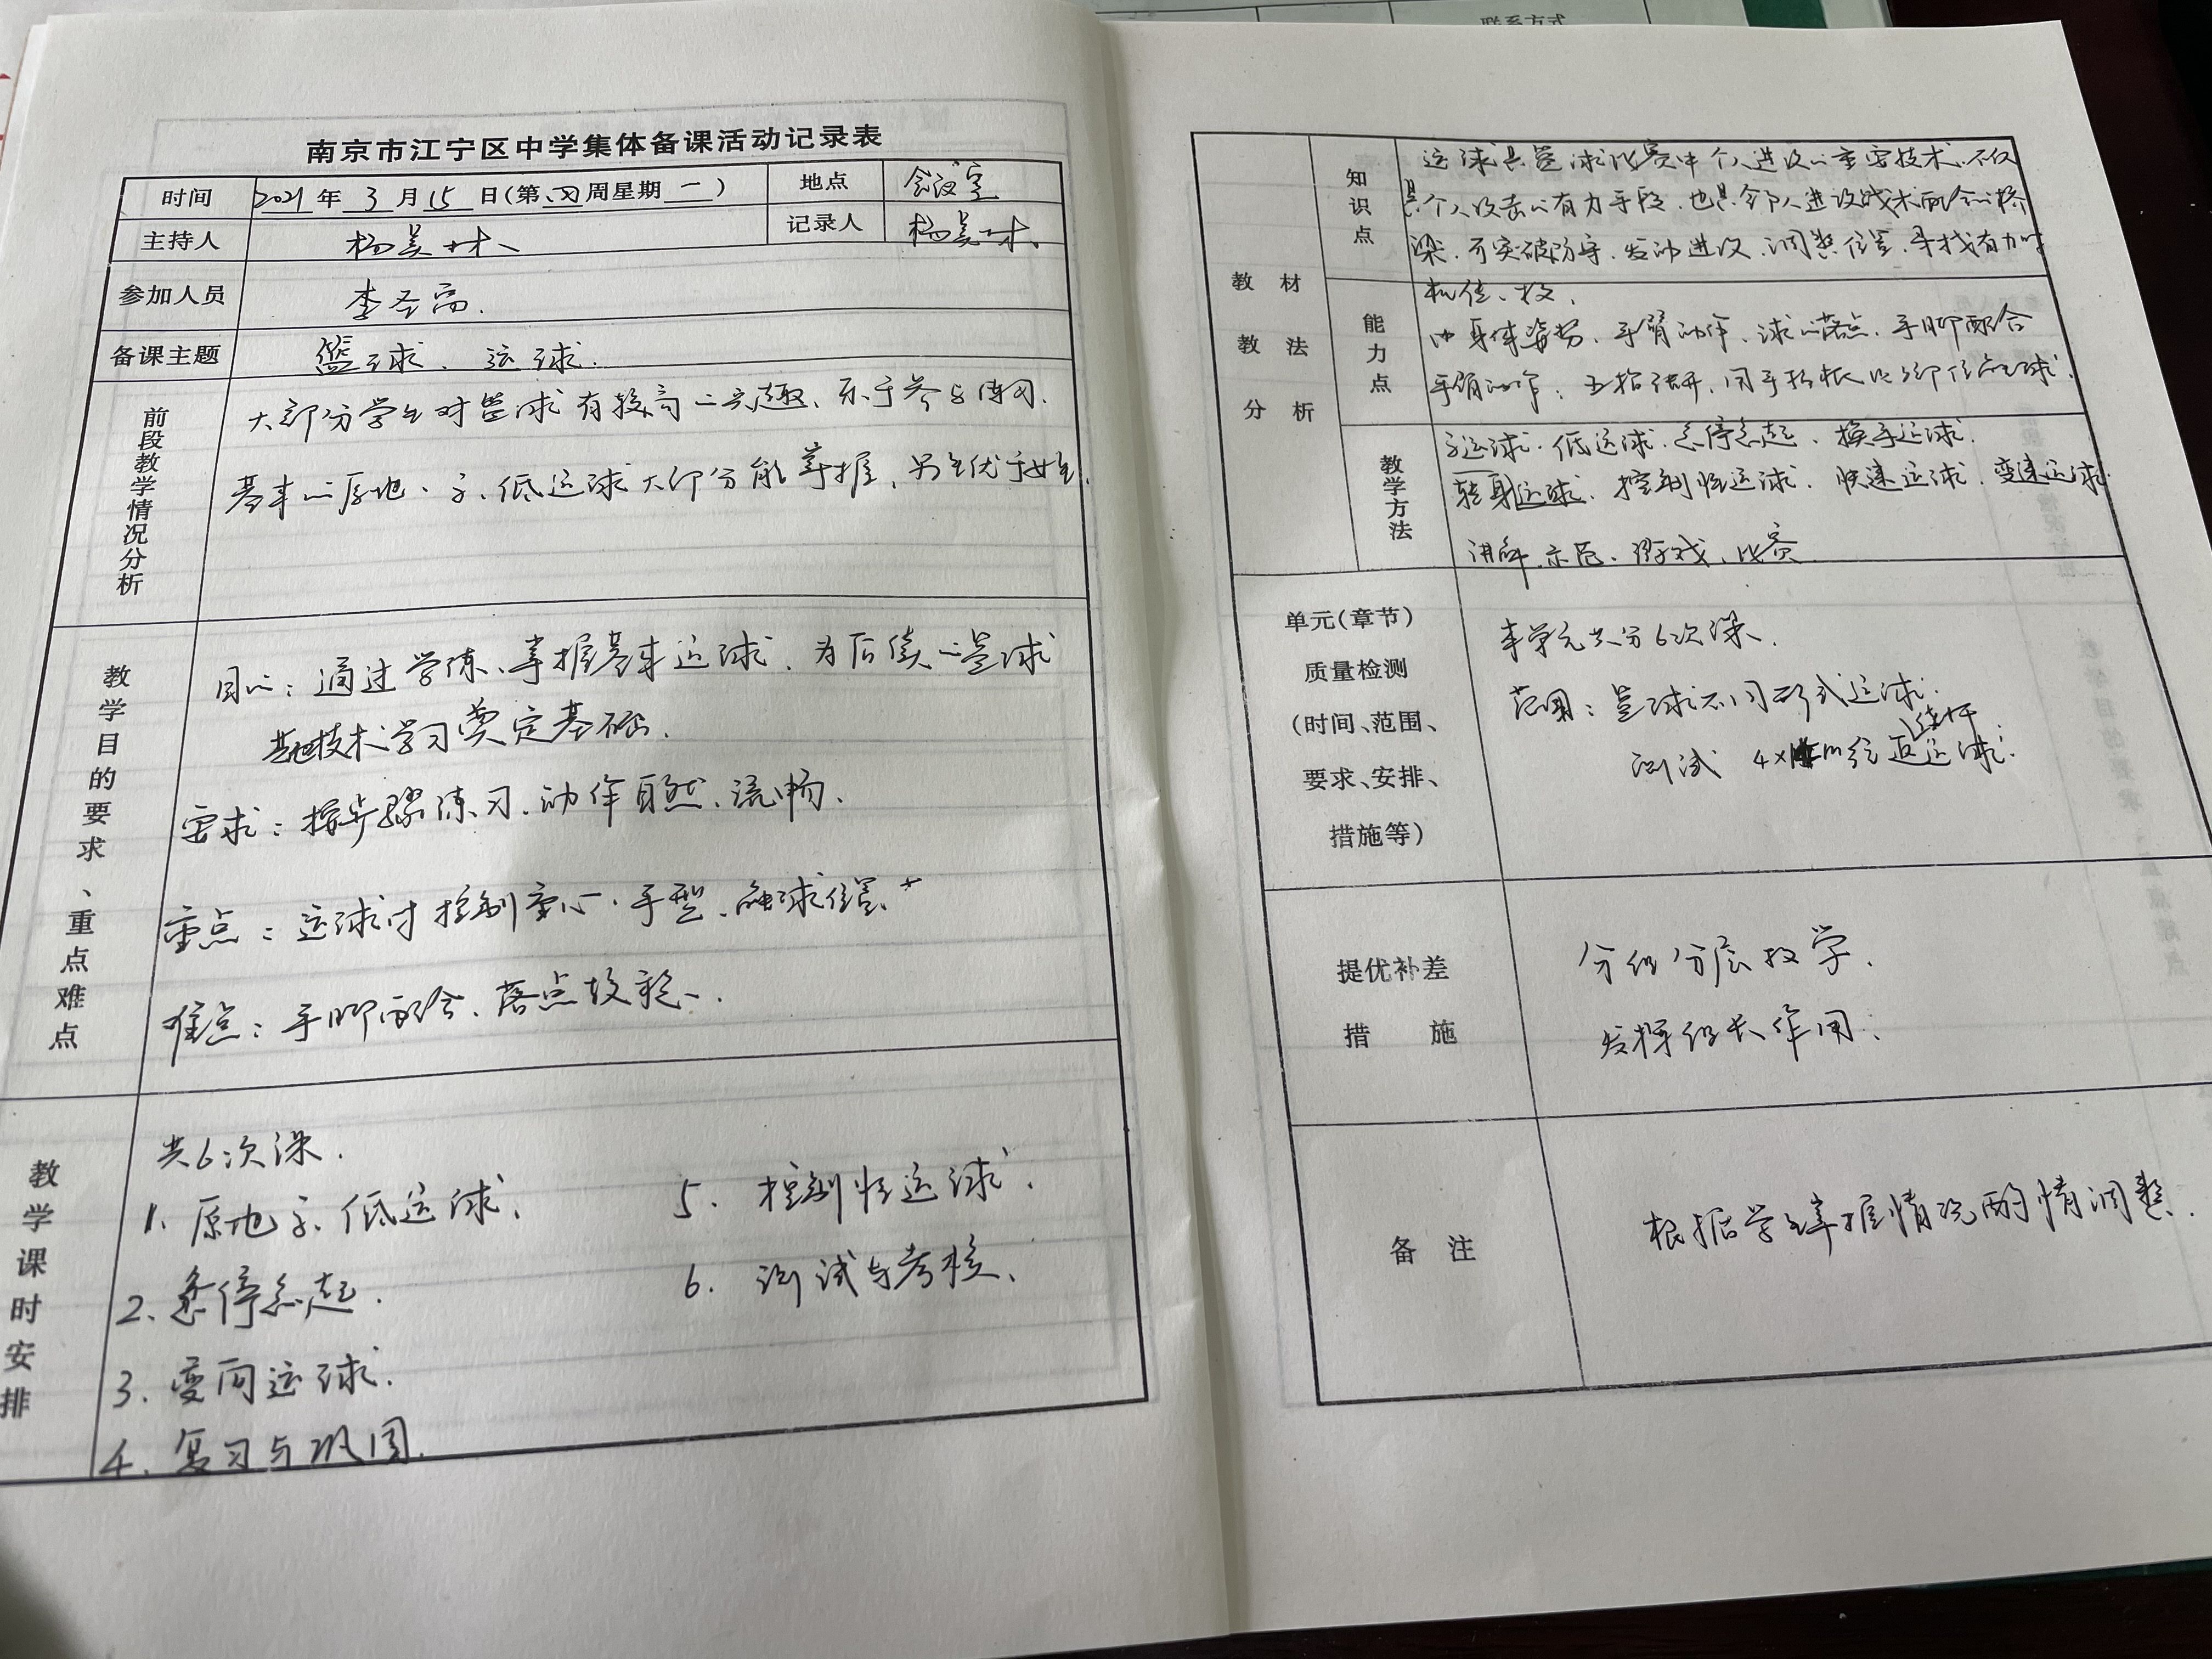 联系方式
南京市江宁区中学集体备课活动记录表
时间 2021 年 3 月 15 日(第 四 周星期 一 ) 地点 会议室
主持人 杨美林 记录人 杨美林
参加人员 李圣富.
备课主题 篮球、运球.
前段教学情况分析
大部分学生对篮球有较高的兴趣、乐于参与练习.
基本的原地、高、低运球大部分能掌握,男生优于女生.
教学目的要求、重点难点
目的:通过学练、掌握基本运球、为后续的篮球
其他技术学习奠定基础.
要求:按步骤练习、动作自然、流畅、
重点:运球时控制重心、手型、触球位置、
难点:手脚配合、落点较稳、.
教学课时安排
共6次课.
1、原地高、低运球、
2、急停急起.
3、变向运球.
4、复习与巩固.
5、控制性运球.
6、测试与考核、
教材教法分析
知识点
运球是篮球比赛中个人进攻的重要技术、不仅
是个人攻击的有力手段、也是全队进攻战术配合的桥
梁、可突破防守、发动进攻、调整位置、寻找有力时
机传、投、
能力点
身体姿势、手臂动作、球的落点、手脚配合
手臂动作:五指张开、用手指根以上部位
教学方法
高运球、低运球、急停急起、换手运球、
转身运球、控制性运球、快速运球、变速运球
讲解、示范、游戏、比赛
单元(章节)
质量检测
(时间、范围、
要求、安排、
措施等)
本单元共分6次课、
范围:篮球不同形式运球.
绕杆
测试 4× m往返运球.
提优补差
措 施
分组分层教学、
发挥组长作用.
备 注
根据学生掌握情况酌情调整.